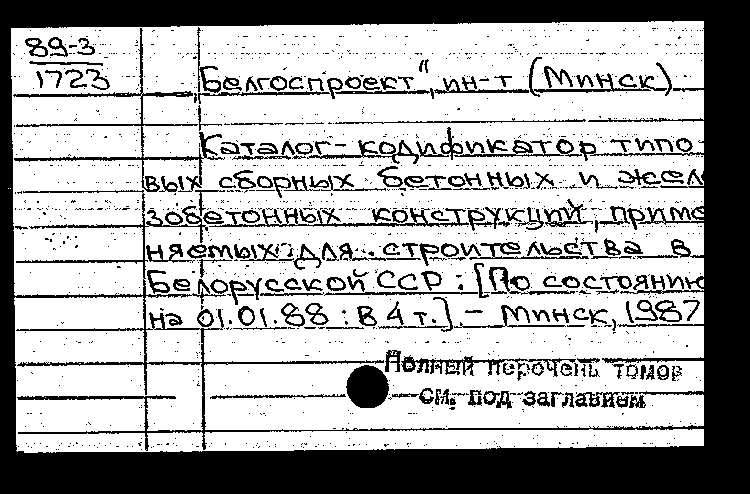 89-3
1723
„Белгоспроект“, ин-т (Минск)
Каталог-кодификатор типо-
вых сборных бетонных и жел
зобетонных конструкций, приме
няемых для строительства в
Белорусской ССР : [По состоянию
на 01.01.88 : В 4 т.] – Минск, 1987
Полный перечень томов
см. под заглавием